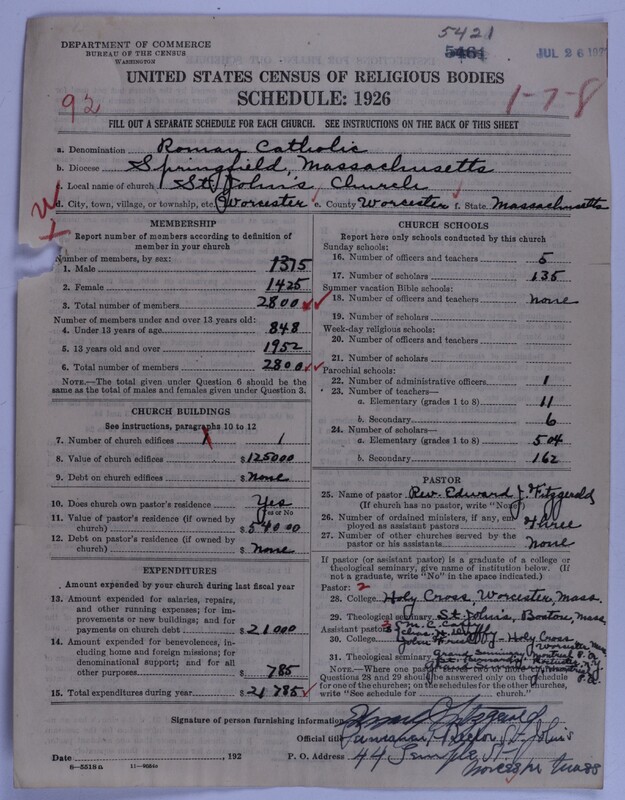 5421
5461
JUL 26 192
DEPARTMENT OF COMMERCE
BUREAU OF THE CENSUS
WASHINGTON
UNITED STATES CENSUS OF RELIGIOUS BODIES
SCHEDULE: 1926
92
1-7-8
FILL OUT A SEPARATE SCHEDULE FOR EACH CHURCH. SEE INSTRUCTIONS ON THE BACK OF THIS SHEET
a. Denomination Roman Catholic
b. Diocese Springfield, Massachusetts
c. Local name of church St. John's, Church
d. City, town, village, or township, etc. Worcester e. County Worcester f. State Massachusetts
MEMBERSHIP
Report number of members according to definition of member in your church
Number of members, by sex:
1. Male 1375
2. Female 1425
3. Total number of members 2800
Number of members under and over 13 years old:
4. Under 13 years of age 848
5. 13 years old and over 1952
6. Total number of members 2800
NOTE.—The total given under Question 6 should be the same as the total of males and females given under Question 3.
CHURCH BUILDINGS
See instructions, paragraphs 10 to 12
7. Number of church edifices 1
8. Value of church edifices $125000
9. Debt on church edifices $ None
10. Does church own pastor's residence Yes
Yes or No
11. Value of pastor's residence (if owned by church) $54000
12. Debt on pastor's residence (if owned by church) $ None
EXPENDITURES
Amount expended by your church during last fiscal year
13. Amount expended for salaries, repairs, and other running expenses; for improvements or new buildings; and for payments on church debt $21000
14. Amount expended for benevolences, including home and foreign missions; for denominational support; and for all other purposes $785
15. Total expenditures during year $21785
CHURCH SCHOOLS
Report here only schools conducted by this church
Sunday schools:
16. Number of officers and teachers 5
17. Number of scholars 135
Summer vacation Bible schools:
18. Number of officers and teachers None
19. Number of scholars
Week-day religious schools:
20. Number of officers and teachers
21. Number of scholars
Parochial schools:
22. Number of administrative officers 1
23. Number of teachers—
a. Elementary (grades 1 to 8) 11
b. Secondary 6
24. Number of scholars—
a. Elementary (grades 1 to 8) 504
b. Secondary 162
PASTOR
25. Name of pastor Rev. Edward J. Fitzgerald
(If church has no pastor, write "No")
26. Number of ordained ministers, if any, employed as assistant pastors Three
27. Number of other churches served by the pastor or his assistants None
If pastor (or assistant pastor) is a graduate of a college or theological seminary, give name of institution below. (If not a graduate, write "No" in the space indicated.)
Pastor: 2
28. College Holy Cross, Worcester, Mass.
29. Theological seminary St. John's, Boston, Mass
Assistant pastor:
30. College Holy Cross
Worcester Mass
31. Theological seminary Grand Seminary Montreal
NOTE.—Where one pastor
Questions 28 and 29 should be answered only on the schedule for one of the churches; on the schedules for the other churches, write "See schedule for church."
Signature of person furnishing information
Official title St. John's
Date , 192 P. O. Address 44 Temple St.
Worcester Mass
8—5518a 11—9054a